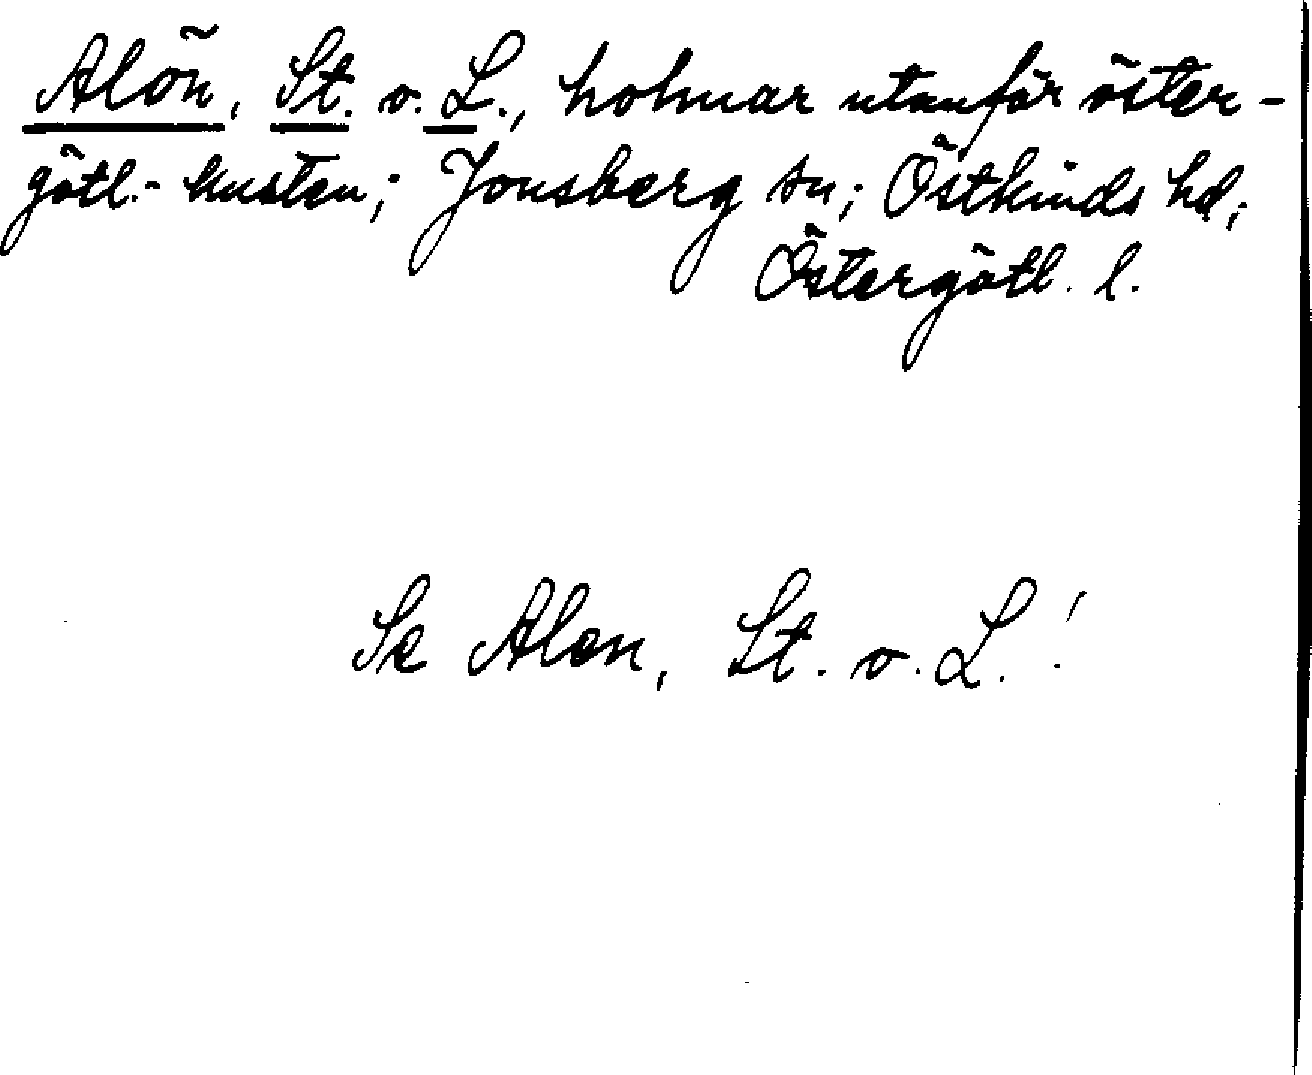 Alön, St. o. L., holmar utanför öster-
götl.- kusten; Jonsberg sn; Östkinds hd;
Östergötl. l.
Se Alen, St. o. L.!